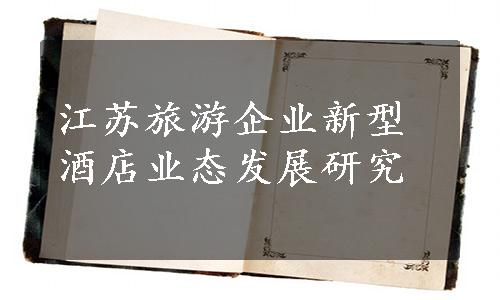 江苏旅游企业新型
酒店业态发展研究